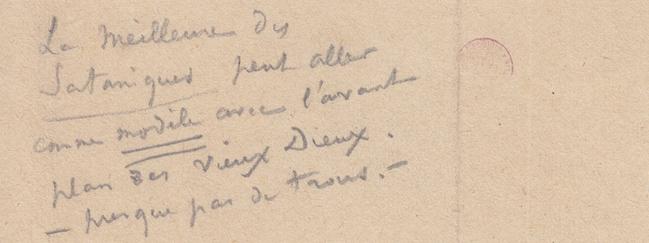 La Meilleure des
Sataniques peut aller
comme modèle avec l'avant
plan des vieux Dieux.
— presque pas de trous. —